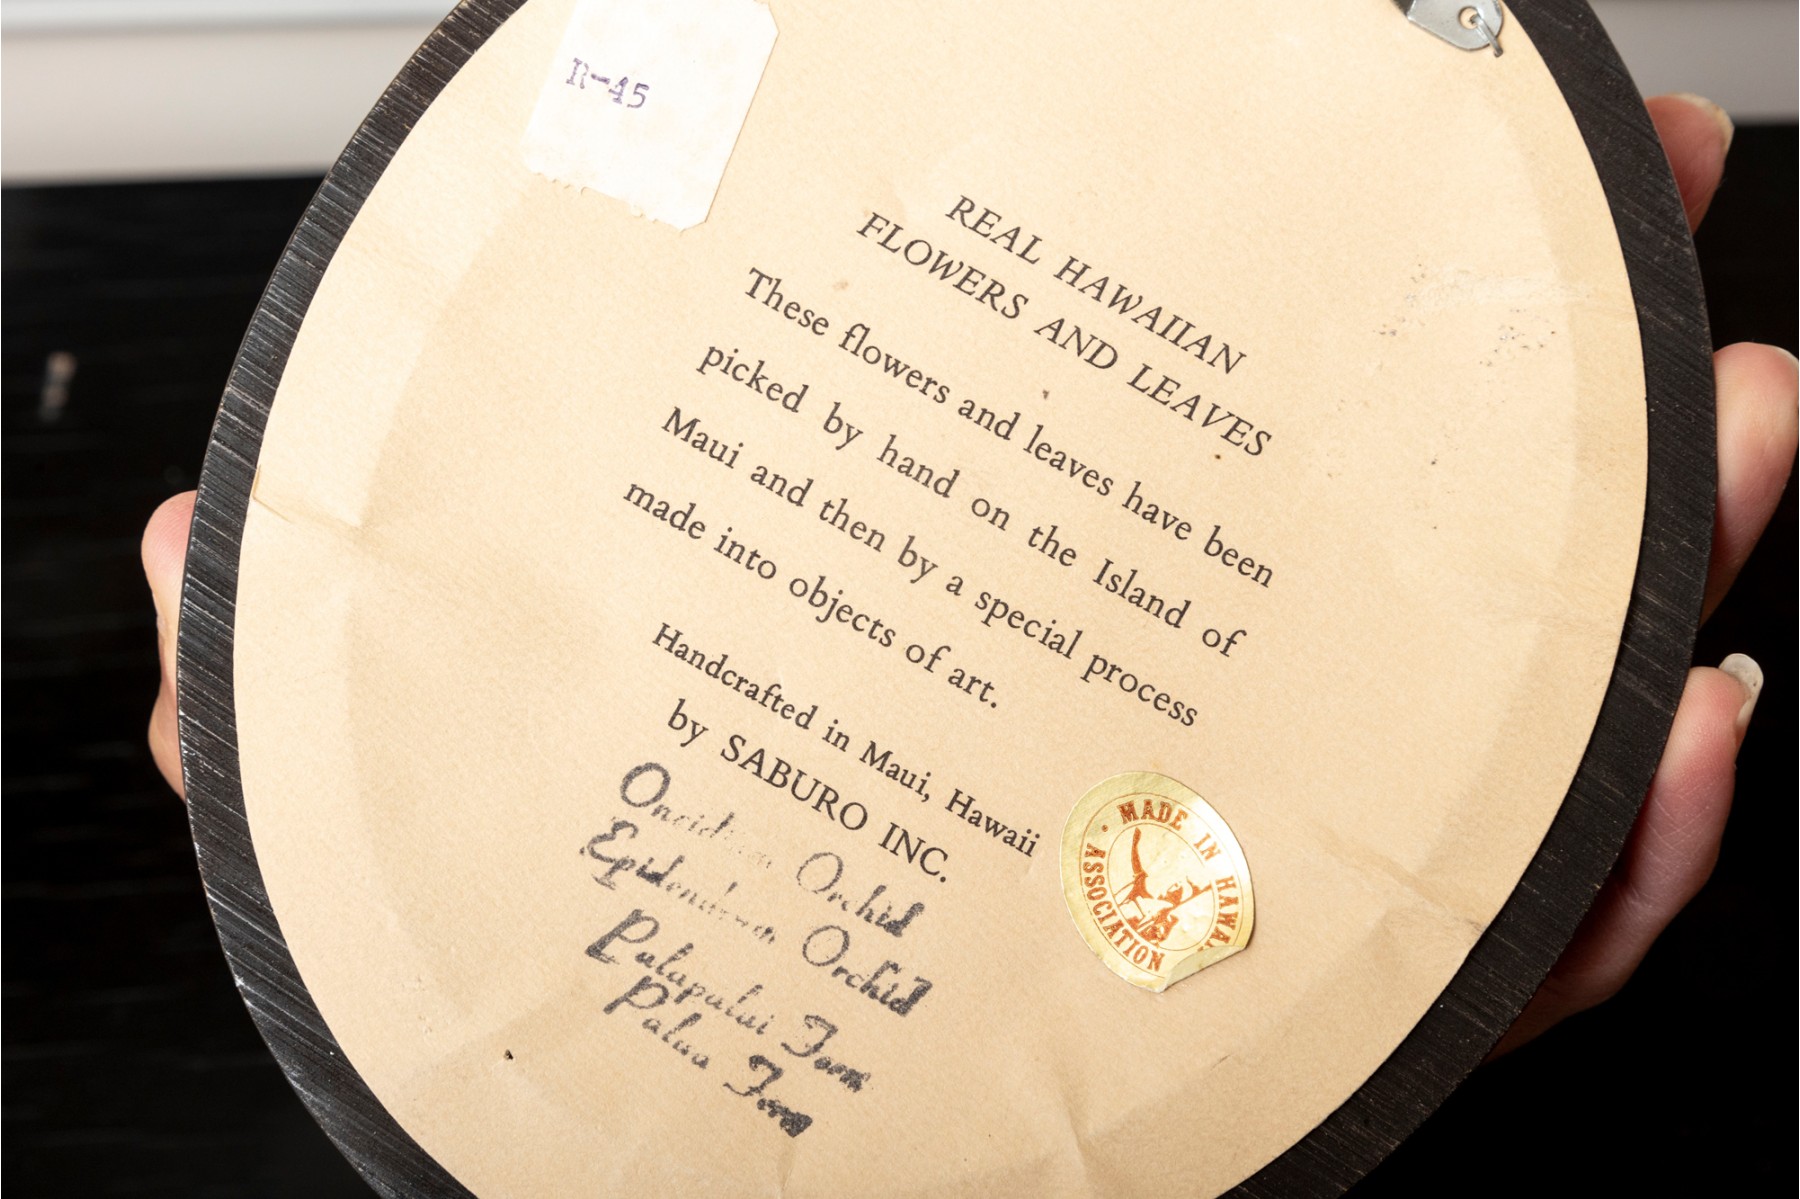 R-45
REAL HAWAIIAN
FLOWERS AND LEAVES
These flowers and leaves have been
picked by hand on the Island of
Maui and then by a special process
made into objects of art.
Handcrafted in Maui, Hawaii
by SABURO INC.
Orchid
Epidendrum Orchid
Palapalai Fern
Palaa Fern
MADE IN HAWAII ASSOCIATION